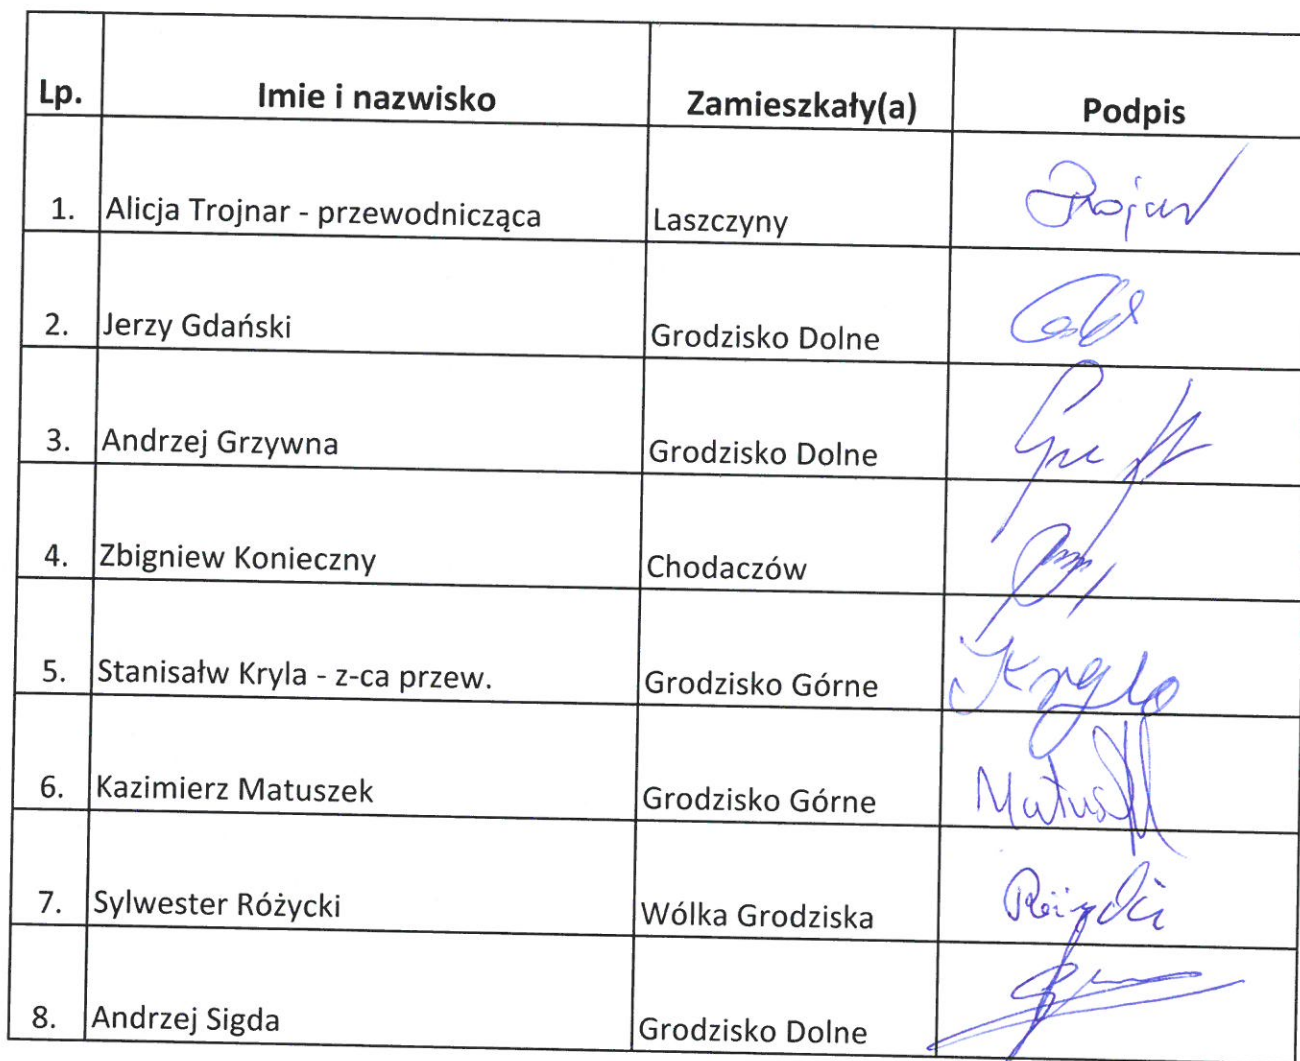 Lp. Imie i nazwisko Zamieszkały(a) Podpis
1. Alicja Trojnar - przewodnicząca Laszczyny Trojnar
2. Jerzy Gdański Grodzisko Dolne
3. Andrzej Grzywna Grodzisko Dolne
4. Zbigniew Konieczny Chodaczów
5. Stanisałw Kryla - z-ca przew. Grodzisko Górne
6. Kazimierz Matuszek Grodzisko Górne
7. Sylwester Różycki Wólka Grodziska Różycki
8. Andrzej Sigda Grodzisko Dolne